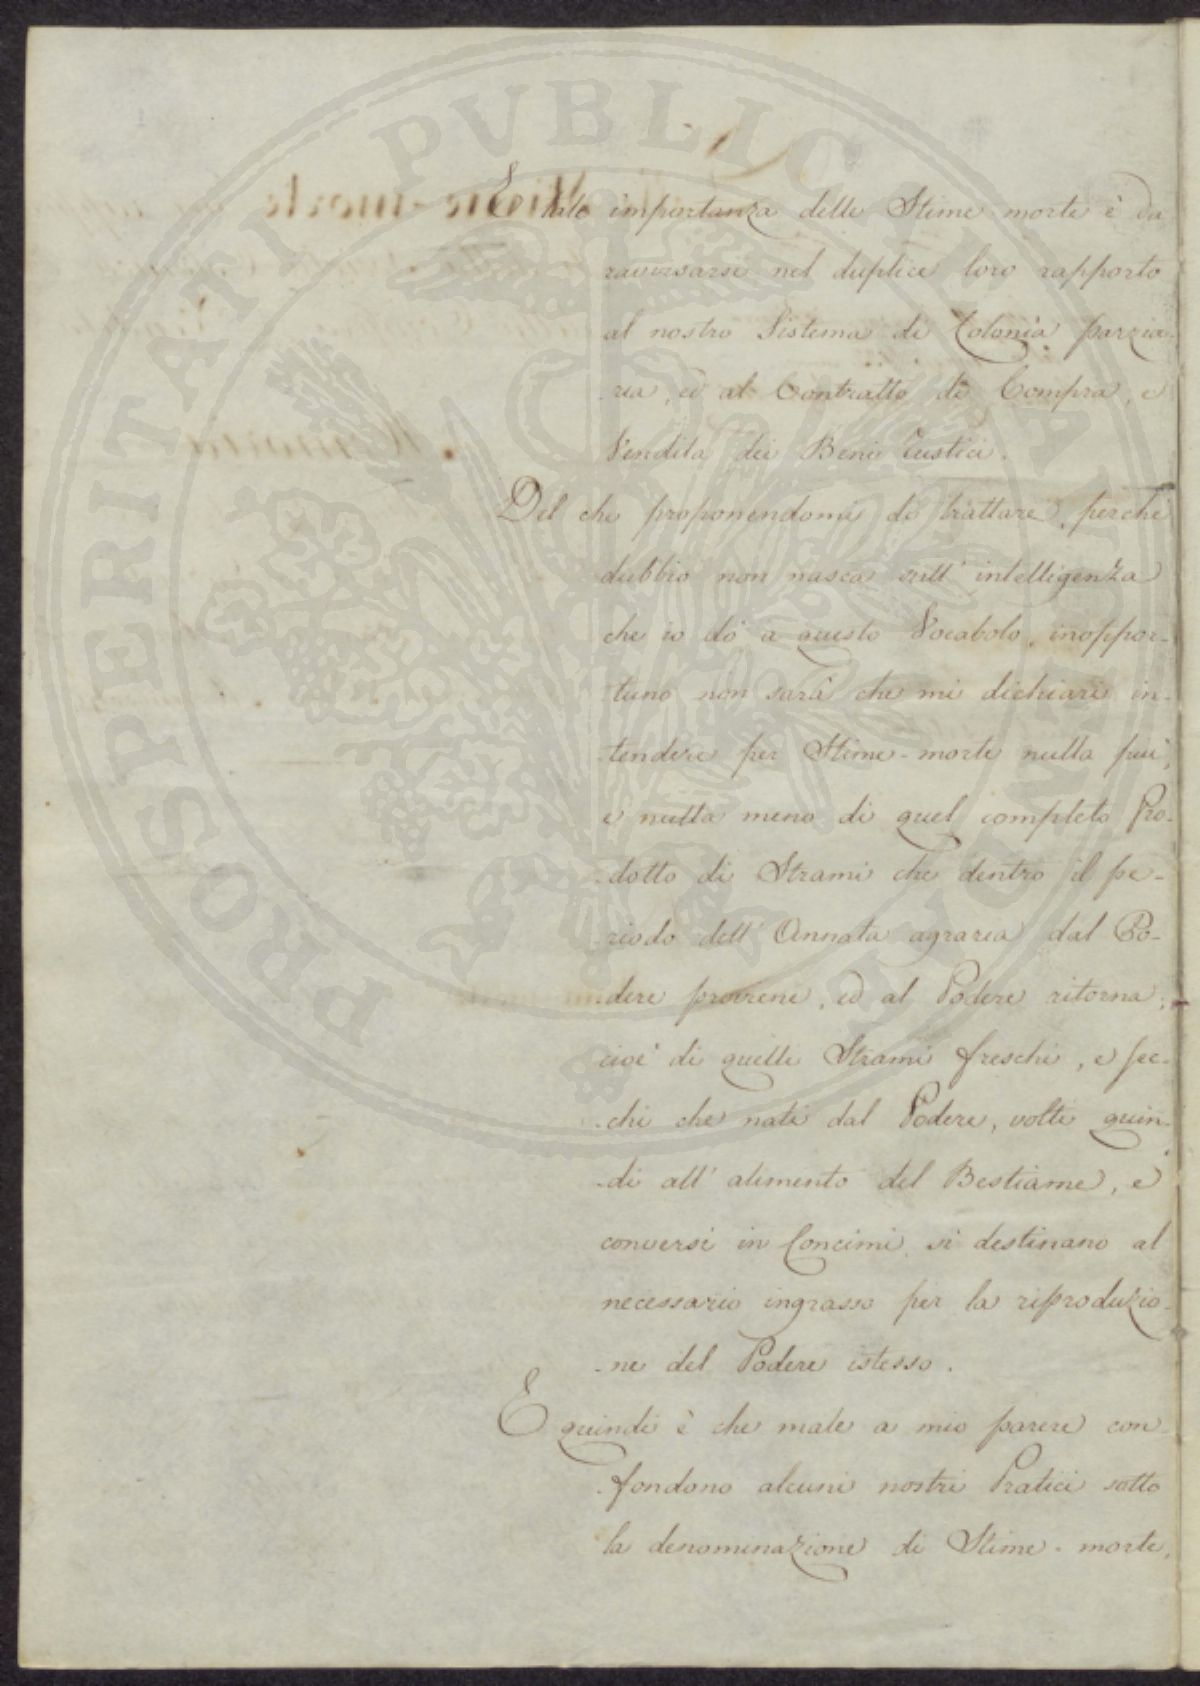 E tale importanza delle Stime morte è da
ravvisarsi nel duplice loro rapporto
al nostro Sistema di Colonìa parzia-
-ria, ed al Contratto di Compra, e
Vendita dei Beni rustici.
Del che proponendomi di trattare, perchè
dubbio non nasca sull' intelligenza
che io dò a questo Vocabolo, inoppor-
-tuno non sarà che mi dichiari in-
-tendere per Stime-morte nulla più,
e nulla meno di quel completo Pro-
-dotto di Strami che dentro il pe-
-riodo dell' Annata agraria dal Po-
-dere proviene, ed al Podere ritorna;
cioè di quelli Strami freschi, e sec-
-chi che nati dal Podere, volti quin-
-di all' alimento del Bestiame, e
conversi in Concimi, si destinano al
necessario ingrasso per la riproduzio-
-ne del Podere istesso.
E quindi è che male a mio parere con-
-fondono alcuni nostri Pratici sotto
la denominazione di Stime-morte,
PROSPERITATI PVBLICAE